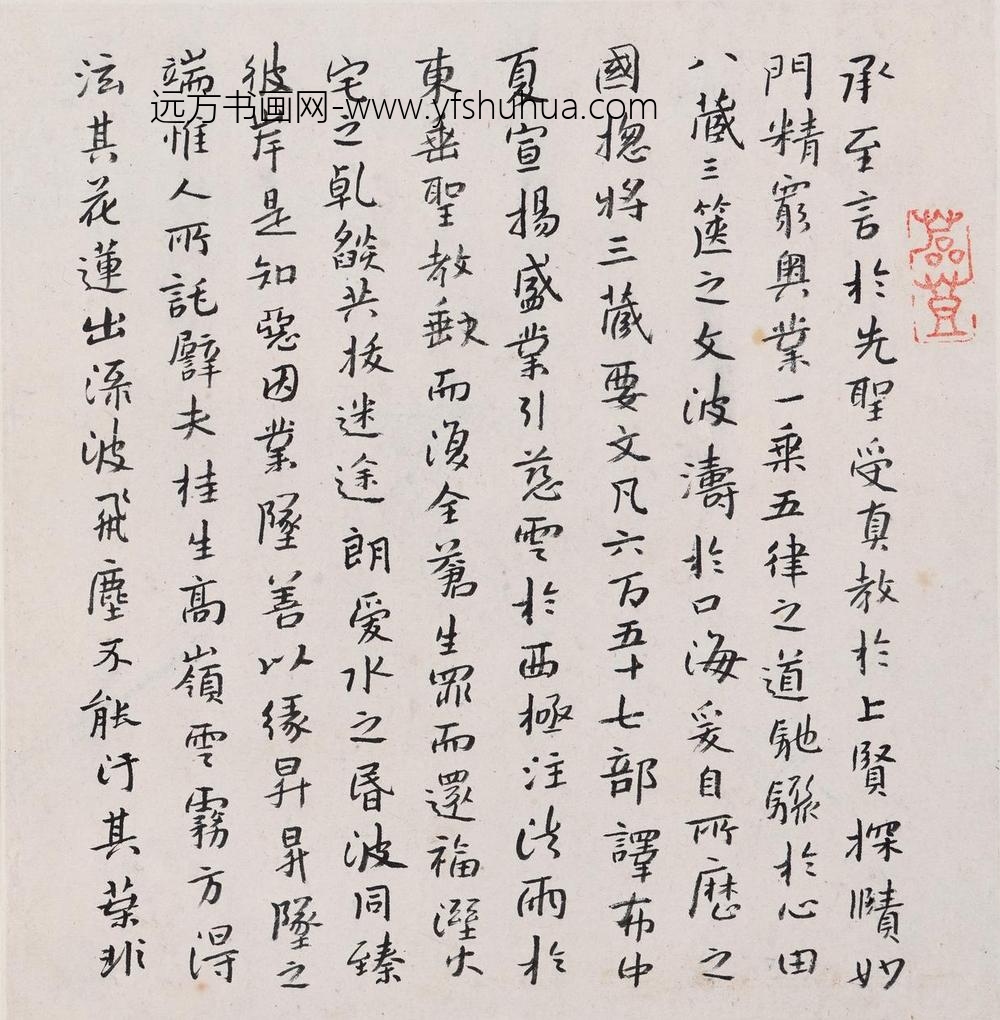 承至言於先聖受真教於上賢探賾妙
門精窮奧業一乘五律之道馳驟於心田
八藏三篋之文波濤於口海爰自所歷之
國揔將三藏要文凡六百五十七部譯布中
夏宣揚盛業引慈雲於西極注法雨於
東垂聖教缺而復全蒼生罪而還福溼火
宅之乹燄共拔迷途朗愛水之昏波同臻
彼岸是知惡因業墜善以緣昇昇墜之
端惟人所託譬夫桂生高嶺雲霧方得
泫其花蓮出淥波飛塵不能汙其葉非
远方书画网-www.yfshuhua.com